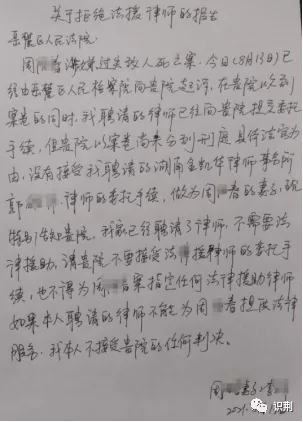 关于拒绝法援律师的报告
岳麓区人民法院:
周 春涉嫌过失致人死亡案,今日(8月13日)已
经由岳麓区人民检察院向贵院起诉,在贵院收到
案卷的同时,我聘请的律师已经向贵院提交委托
手续,但贵院以案卷尚未分到刑庭具体法官为
由,没有接受我聘请的湖南金凯华律师事务所
郭 律师的委托手续,做为周 春的妻子,现
特告知贵院,我家已经聘请了律师,不需要法
律援助,请贵院不要接受法律援助律师的委托手
续,也不得为周 春案指定任何法律援助律师
如果本人聘请的律师不能为周 春提供法律
服务,我本人不接受贵院的任何判决。
周 妻子:李
2021.
识荆